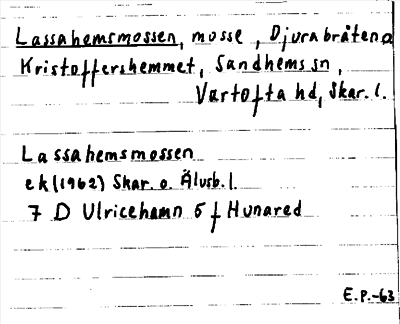 Lassahemsmossen, mosse, Djurabråtena
Kristoffershemmet, Sandhems sn,
Vartofta hd, Skar. l.
Lassahemsmossen
ek (1962) Skar. o. Älvsb. l.
7 D Ulricehamn 5 f Hunared
E.P.-63